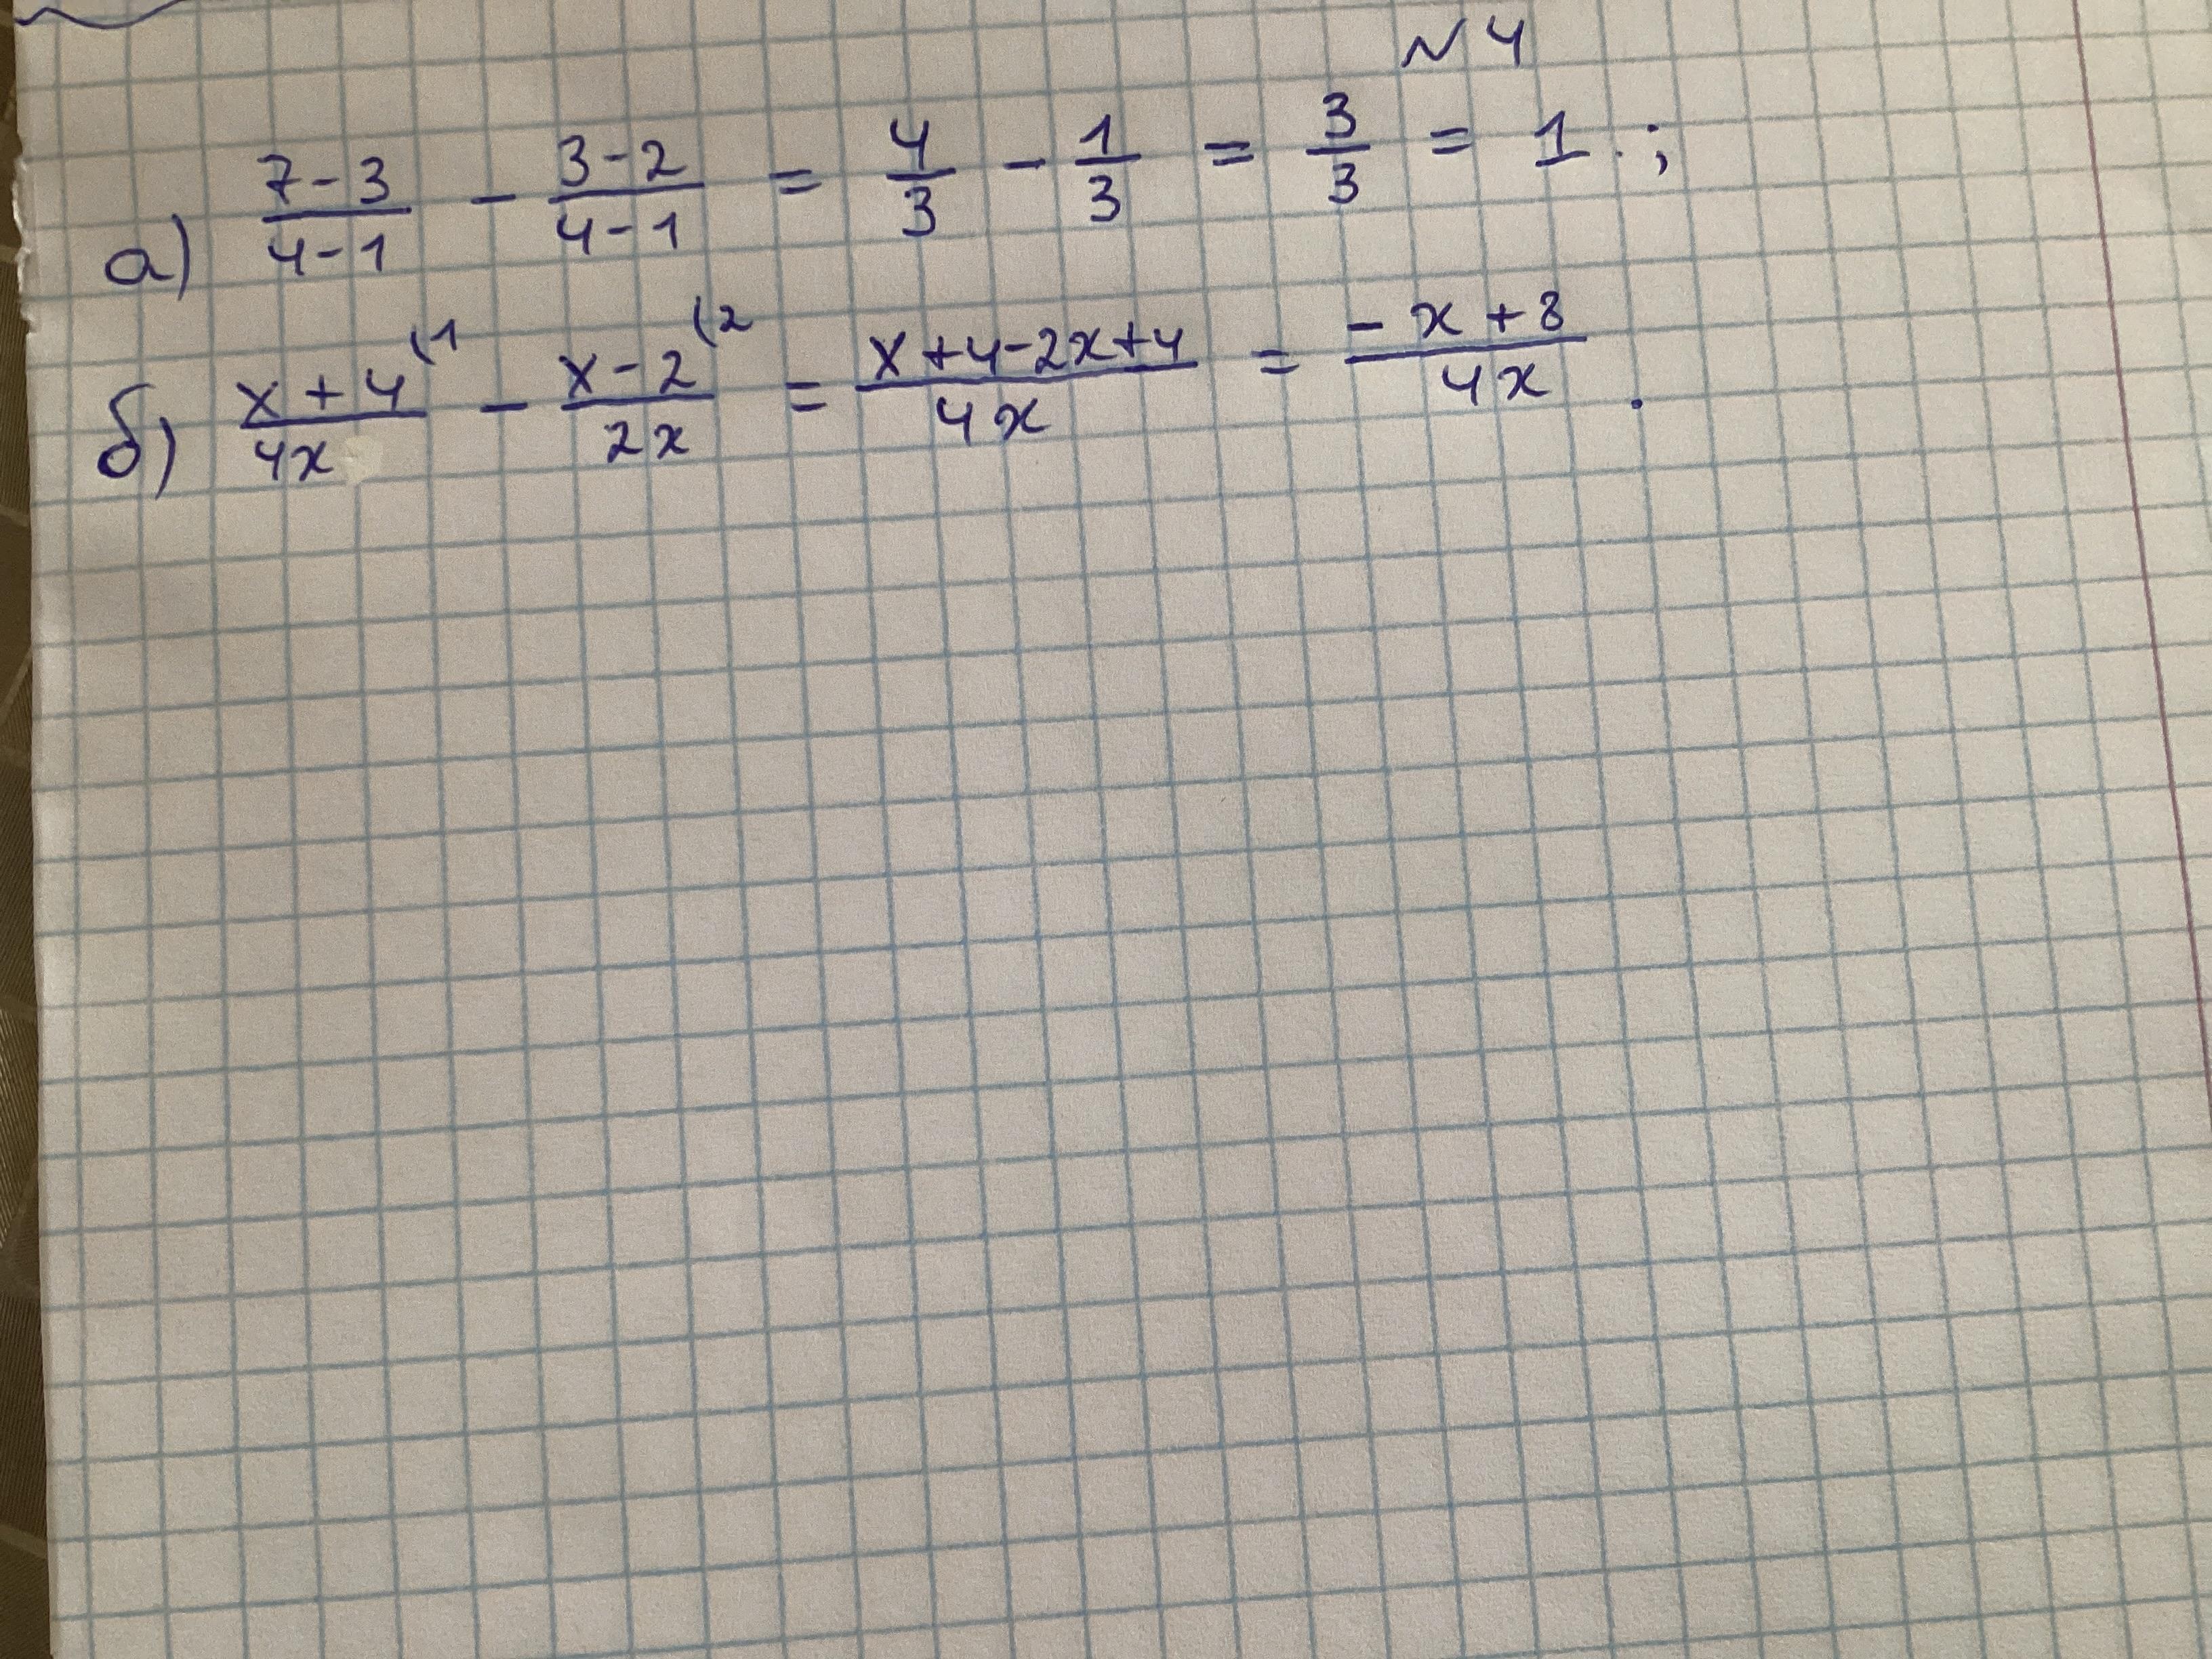 N 4
а) (7-3)/(4-1) - (3-2)/(4-1) = 4/3 - 1/3 = 3/3 = 1.;
б) (x+4)/(4x) (1 - (x-2)/(2x) (2 = (x+4-2x+4)/(4x) = (-x+8)/(4x).